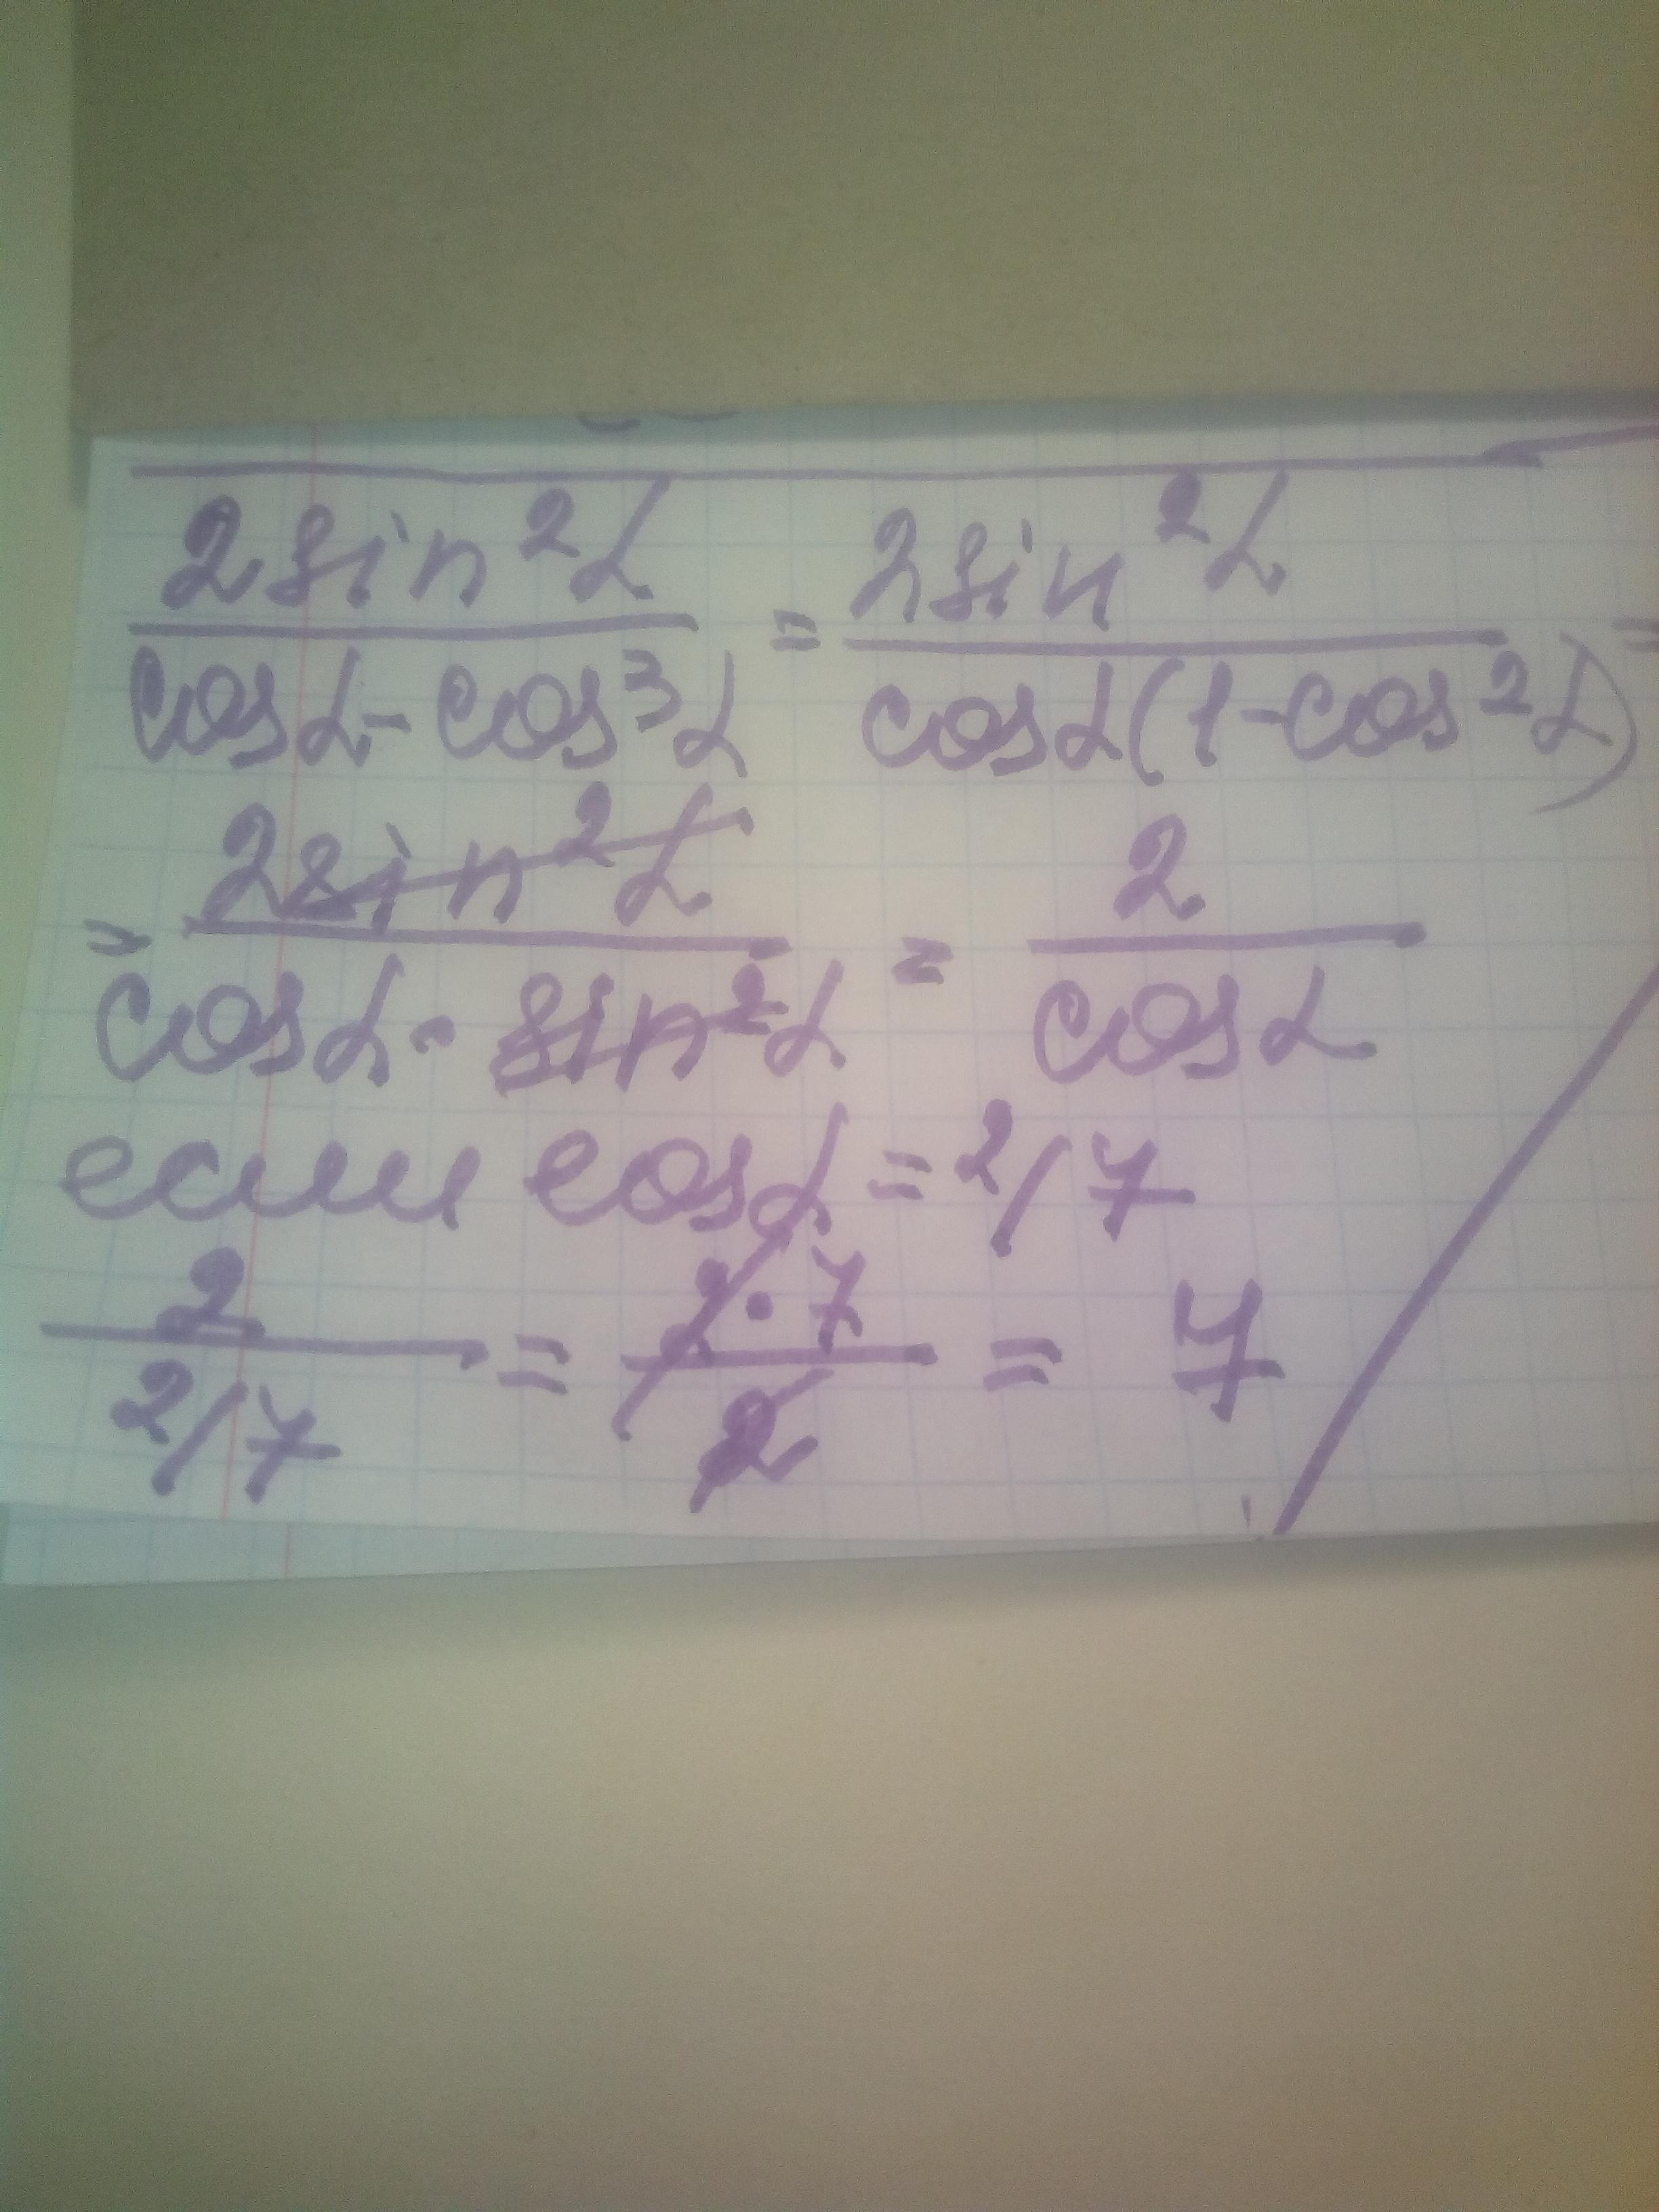 2sin²α / cosα - cos³α = 2sin²α / cosα(1-cos²α) =
= 2sin²α / cosα · sin²α = 2 / cosα
если cosα = 2/7
2 / 2/7 = 2·7 / 2 = 7